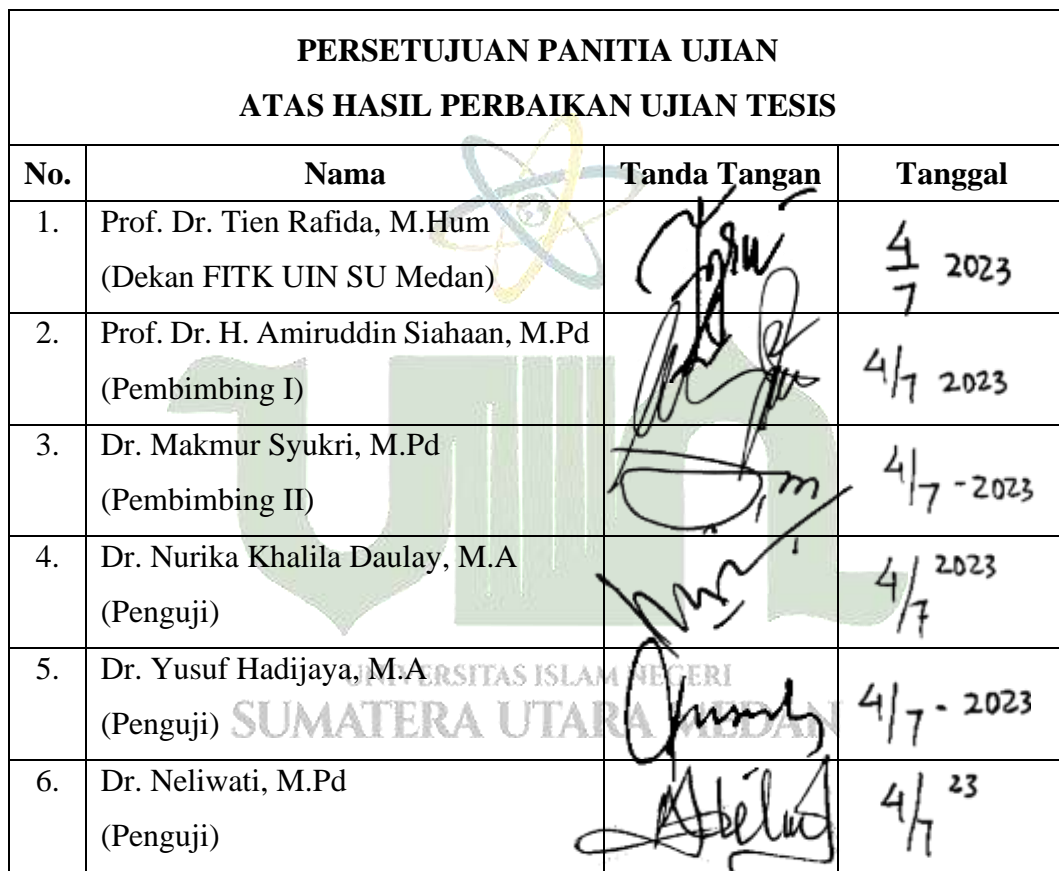 PERSETUJUAN PANITIA UJIAN
ATAS HASIL PERBAIKAN UJIAN TESIS
No. Nama Tanda Tangan Tanggal
1. Prof. Dr. Tien Rafida, M.Hum
(Dekan FITK UIN SU Medan) 4/7 2023
2. Prof. Dr. H. Amiruddin Siahaan, M.Pd
(Pembimbing I) 4/7 2023
3. Dr. Makmur Syukri, M.Pd
(Pembimbing II) 4/7 - 2023
4. Dr. Nurika Khalila Daulay, M.A
(Penguji) 4/7 2023
5. Dr. Yusuf Hadijaya, M.A
(Penguji) 4/7 - 2023
6. Dr. Neliwati, M.Pd
(Penguji) 4/7 23
UNIVERSITAS ISLAM NEGERI
SUMATERA UTARA MEDAN